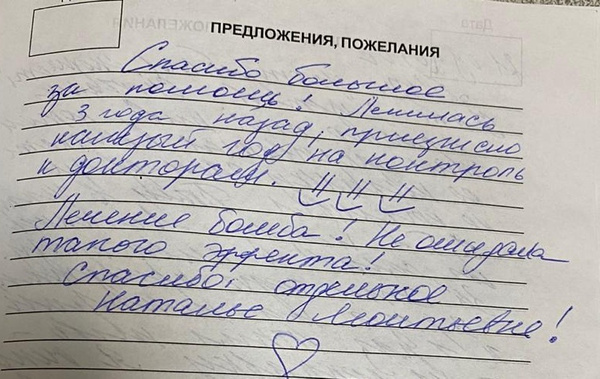 ПРЕДЛОЖЕНИЯ, ПОЖЕЛАНИЯ
Спасибо большое
за помощь! Лечилась
3 года назад, приезжаю
каждый год на контроль
к докторам.
Лечение бомба! Не ожидала
такого эффекта!
Спасибо, отдельное
Наталье Леонтьевне!